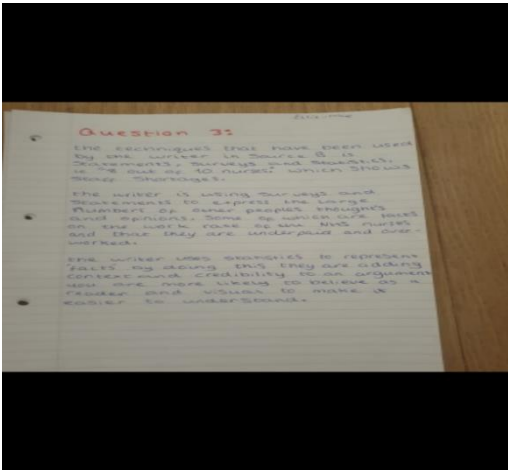 Question 3:
the techniques that have been used
by the writer in Source B is
Statements, Surveys and Statistics,
"8 out of 10 nurses" which shows
Staff Shortages.
the writer is using surveys and
Statements to express the large
Numbers of other peoples thoughts
and opinions. Some of which are facts
on the work rate of the NHS nurses
and that they are underpaid and over-
worked.
the writer uses statistics to represent
'facts' by doing this they are adding
context and credibility to an argument
you are more likely to believe as a
reader and visual to make it
easier to understand.